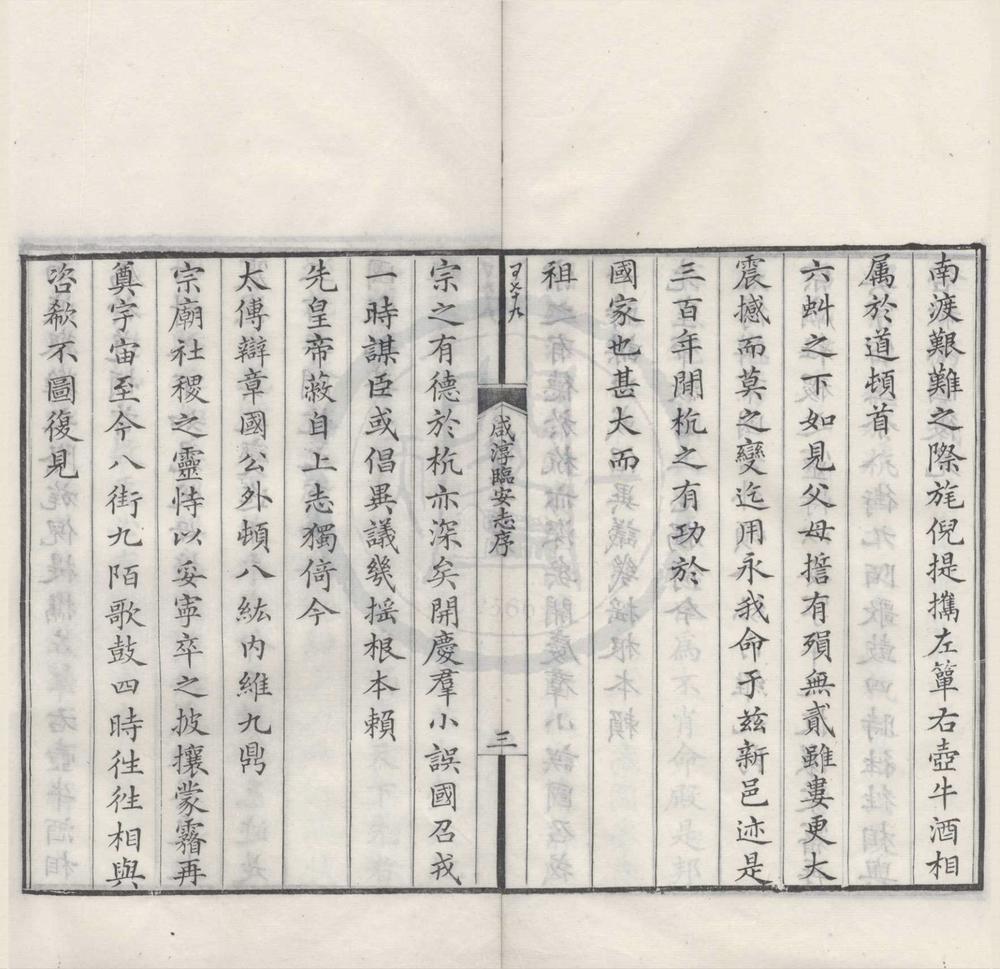 南渡艱難之際旄倪提攜左簞右壺牛酒相
属於道頓首
六虯之下如見父母誓有殞無貳雖婁更大
震撼而莫之變迄用永我命于茲新邑迹是
三百年閒杭之有功於
國家也甚大而
祖
咸淳臨安志序
三
宗之有德於杭亦深矣開慶羣小誤國召戎
一時謀臣或倡異議幾揺根本賴
先皇帝蔽自上志獨倚今
太傅辯章國公外頓八紘内維九鼎
宗廟社稷之靈恃以妥寜卒之披攘蒙霿再
奠宇宙至今八街九陌歌鼓四時徃徃相與
咨欷不圖復見